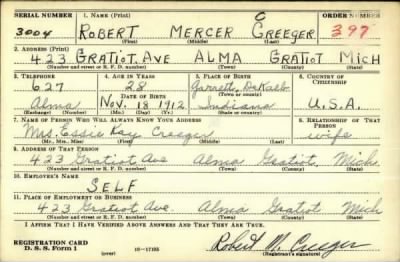 SERIAL NUMBER 1. NAME (Print) ORDER NUMBER
3004 ROBERT MERCER CREEGER 397
(First) (Middle) (Last)
2. ADDRESS (Print)
423 GRATIOT. AVE ALMA GRATIOT MICH
(Number and street or R. F. D. number) (Town) (County) (State)
3. TELEPHONE 4. AGE IN YEARS 5. PLACE OF BIRTH 6. COUNTRY OF CITIZENSHIP
627 28 Garrett, DeKalb
DATE OF BIRTH (Town or county)
Alma Nov. 18 1912 Indiana U.S.A.
(Exchange) (Number) (Mo.) (Day) (Yr.) (State or country)
7. NAME OF PERSON WHO WILL ALWAYS KNOW YOUR ADDRESS 8. RELATIONSHIP OF THAT PERSON
Mrs. Essie Kay Creeger wife
(Mr., Mrs., Miss) (First) (Middle) (Last)
9. ADDRESS OF THAT PERSON
423 Gratiot Ave Alma Gratiot Mich.
(Number and street or R. F. D. number) (Town) (County) (State)
10. EMPLOYER'S NAME
SELF
11. PLACE OF EMPLOYMENT OR BUSINESS
423 Gratiot Ave. Alma Gratiot Mich
(Number and street or R. F. D. number) (Town) (County) (State)
I AFFIRM THAT I HAVE VERIFIED ABOVE ANSWERS AND THAT THEY ARE TRUE.
REGISTRATION CARD
D. S. S. Form 1 (over) 16-17105 Robert M. Creeger
(Registrant's signature)